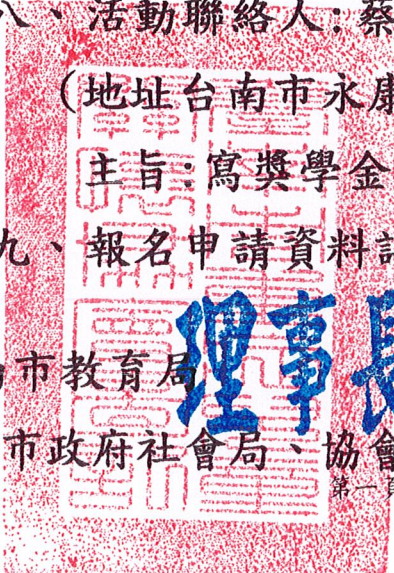 八、活動聯絡人:蔡
(地址台南市永康
主旨:寫獎學金
九、報名申請資料
理事長
市教育局
市政府社會局、協會
第一頁